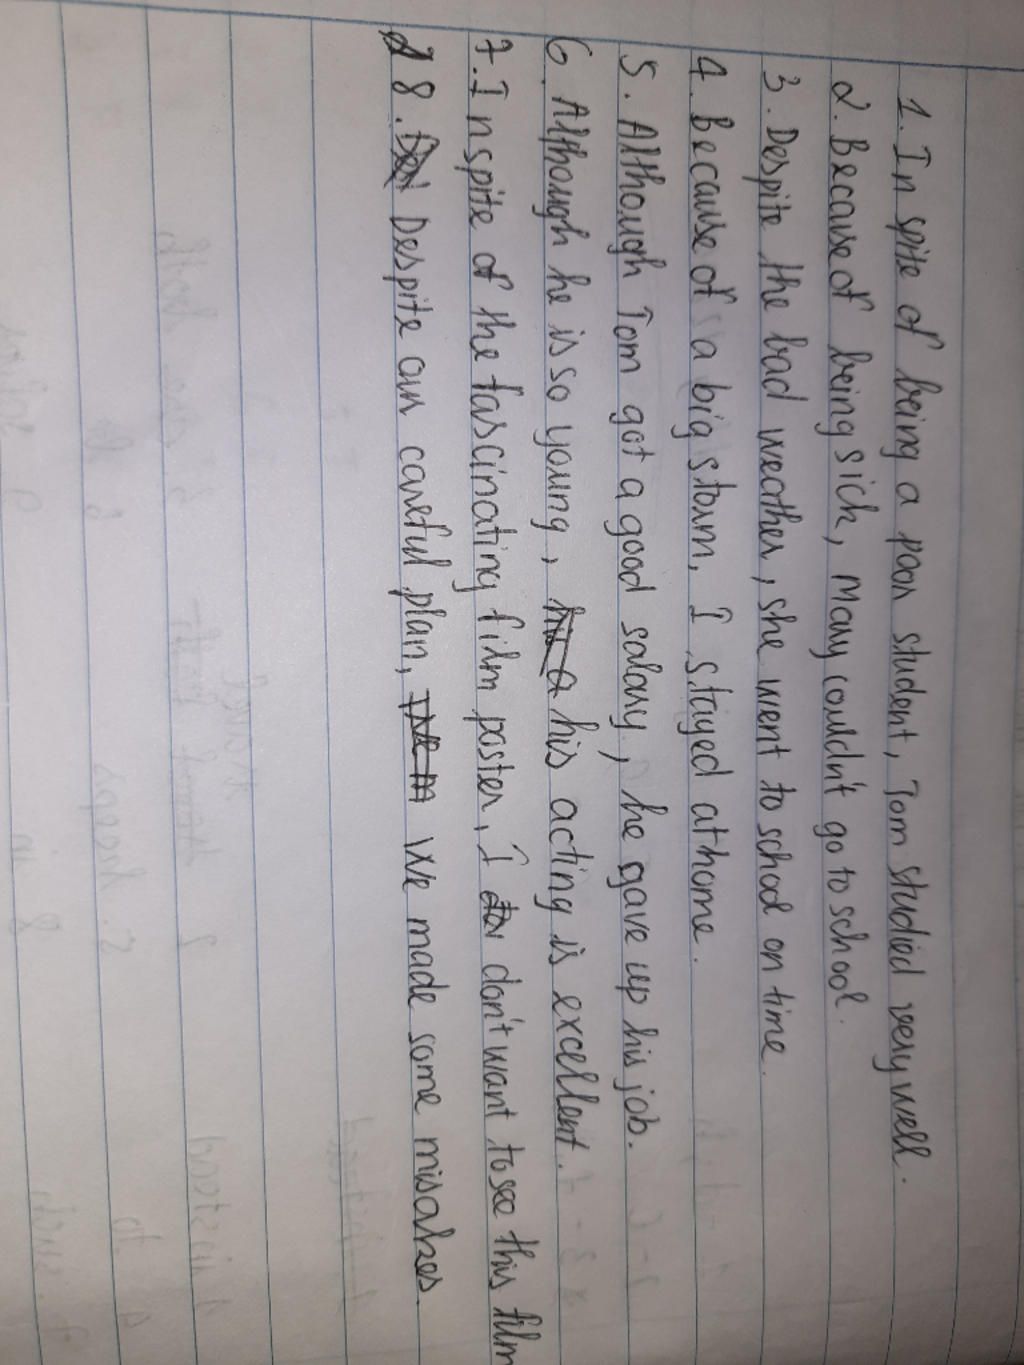 1. In spite of being a poor student, Tom studied very well.
2. Because of being sick, Mary couldn't go to school.
3. Despite the bad weather, she went to school on time.
4. Because of a big storm, I stayed at home.
5. Although Tom got a good salary, he gave up his job.
6. Although he is so young, his acting is excellent.
7. Inspite of the fascinating film poster, I don't want to see this film
8. Despite our careful plan, we made some misakes.